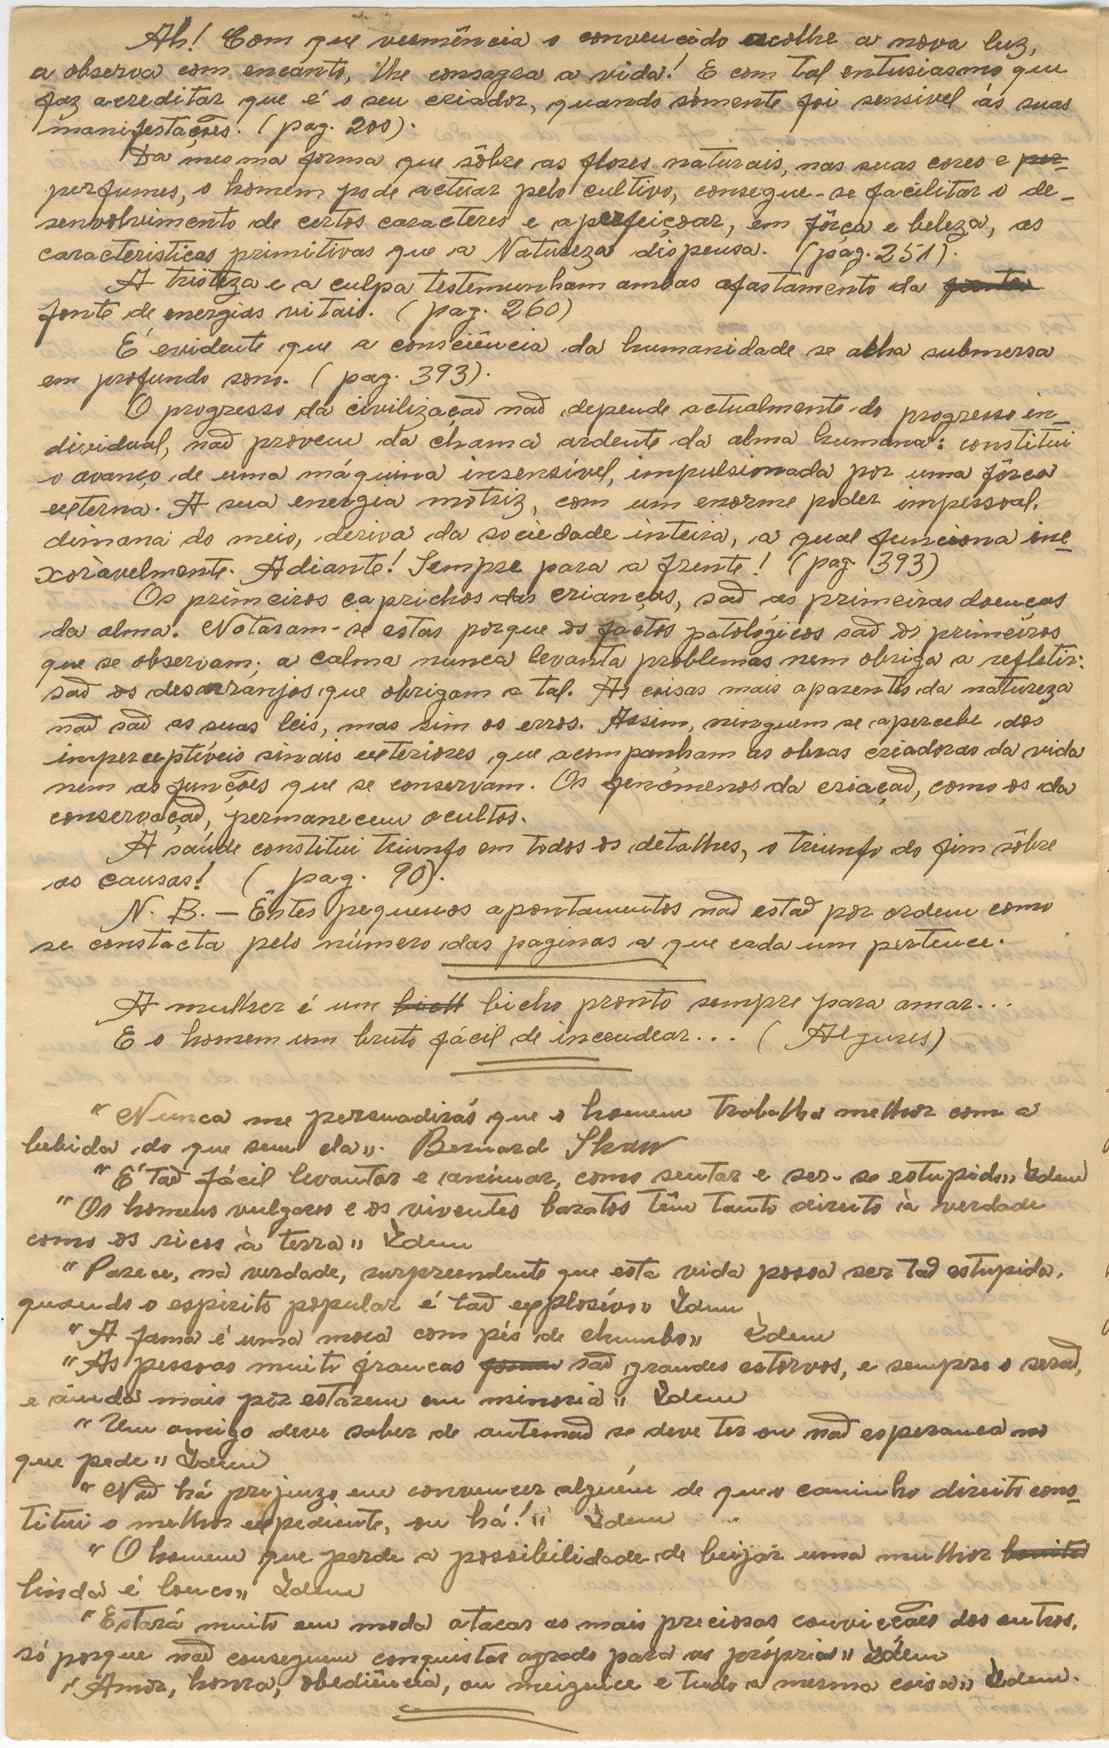 Ah! Com que veemência o convencido acolhe a nova luz,
a observa com encanto, lhe consagra a vida! E com tal entusiasmo que
faz acreditar que é o seu criador, quando sòmente foi sensivel ás suas
manifestações. (pag. 200).
Da mesma forma que sôbre as flores naturais, nas suas cores e per-
perfumes, o homem pode actuar pelo cultivo, consegue-se facilitar o de-
senvolvimento de certos caracteres e aperfeiçoar, em fôrça e beleza, as
caracteristicas primitivas que a Natureza dispensa. (pág. 251).
A tristeza e a culpa testemunham ambas afastamento da fontes
fonte de energias vitais. (pag. 260)
É evidente que a consciência da humanidade se acha submersa
em profundo sono. (pag. 393).
O progresso da civilização não depende actualmente do progresso in-
dividual, não provem da chama ardente da alma humana: constitui
o avanço de uma máquina insensível, impulsionada por uma fôrça
externa. A sua energia motriz, com um enorme poder impessoal,
dimana do meio, deriva da sociedade inteira, a qual funciona ine-
xoravelmente. Adiante! Sempre para a frente! (pag. 393)
Os primeiros caprichos das crianças, são as primeiras doenças
da alma. Notaram-se estas porque os factos patológicos são os primeiros
que se observam; a calma nunca levanta problemas nem obriga a refletir:
são os desarranjos que obrigam a tal. As coisas mais aparentes da natureza
não são as suas leis, mas sim os erros. Assim, ninguem se apercebe dos
imperceptíveis sinais exteriores que acompanham as obras criadoras da vida
nem as funções que se conservam. Os fenómenos da criação, como os da
conservação, permanecem ocultos.
A saúde constitui triunfo em todos os detalhes, o triunfo do fim sôbre
as causas! (pag. 90).
N. B. — Êstes pequenos apontamentos não estão por ordem como
se constacta pelo número das paginas a que cada um pertence.
A mulher é um bicho pronto sempre para amar...
E o homem um bruto fácil de incendear... (Algures)
"Nunca me persuadirás que o homem trabalha melhor com a
bebida do que sem ela". Bernard Shaw
"É tão fácil levantar e animar, como sentar e ser-se estupido" Idem
"Os homens vulgares e os viventes baratos têm tanto direito à verdade
como os ricos à terra" Idem
"Parece, na verdade, surpreendente que esta vida possa ser tão estupida,
quando o espirito popular é tão explosivo" Idem
"A fama é uma moça com pés de chumbo" Idem
"As pessoas muito francas são grandes estorvos, e sempre o serão,
e ainda mais por estarem em minoria" Idem
"Um amigo deve saber de antemão se deve ter ou não esperança no
que pede" Idem
"Não há prejuizo em convencer alguém de que o caminho direito cons-
titui o melhor expediente, ou há!" Idem
"O homem que perde a possibilidade de beijar uma mulher bonita
linda é louco" Idem
"Estará muito em moda atacar as mais preciosas convicções dos outros,
só porque não conseguem conquistar agrado para as próprias" Idem
"Amor, honra, obediência, ou meiguice e tudo a mesma coisa" Idem.